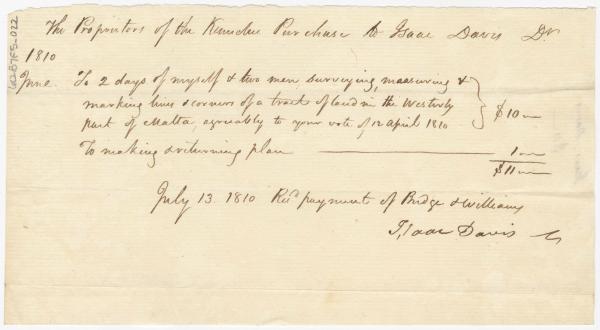 The Proprietors of the Kennebec Purchase to Isaac Davis Dr
1810
June. To 2 days of myself & two men surveying, measuring &
marking lines & corners of a tract of land in the Westerly
part of Malta, agreeably to your vote of 12 April 1810 $10
To making & returning plan 1
$11
July 13. 1810 Recd payment of Bridge & Williams
Isaac Davis
6287FS-022